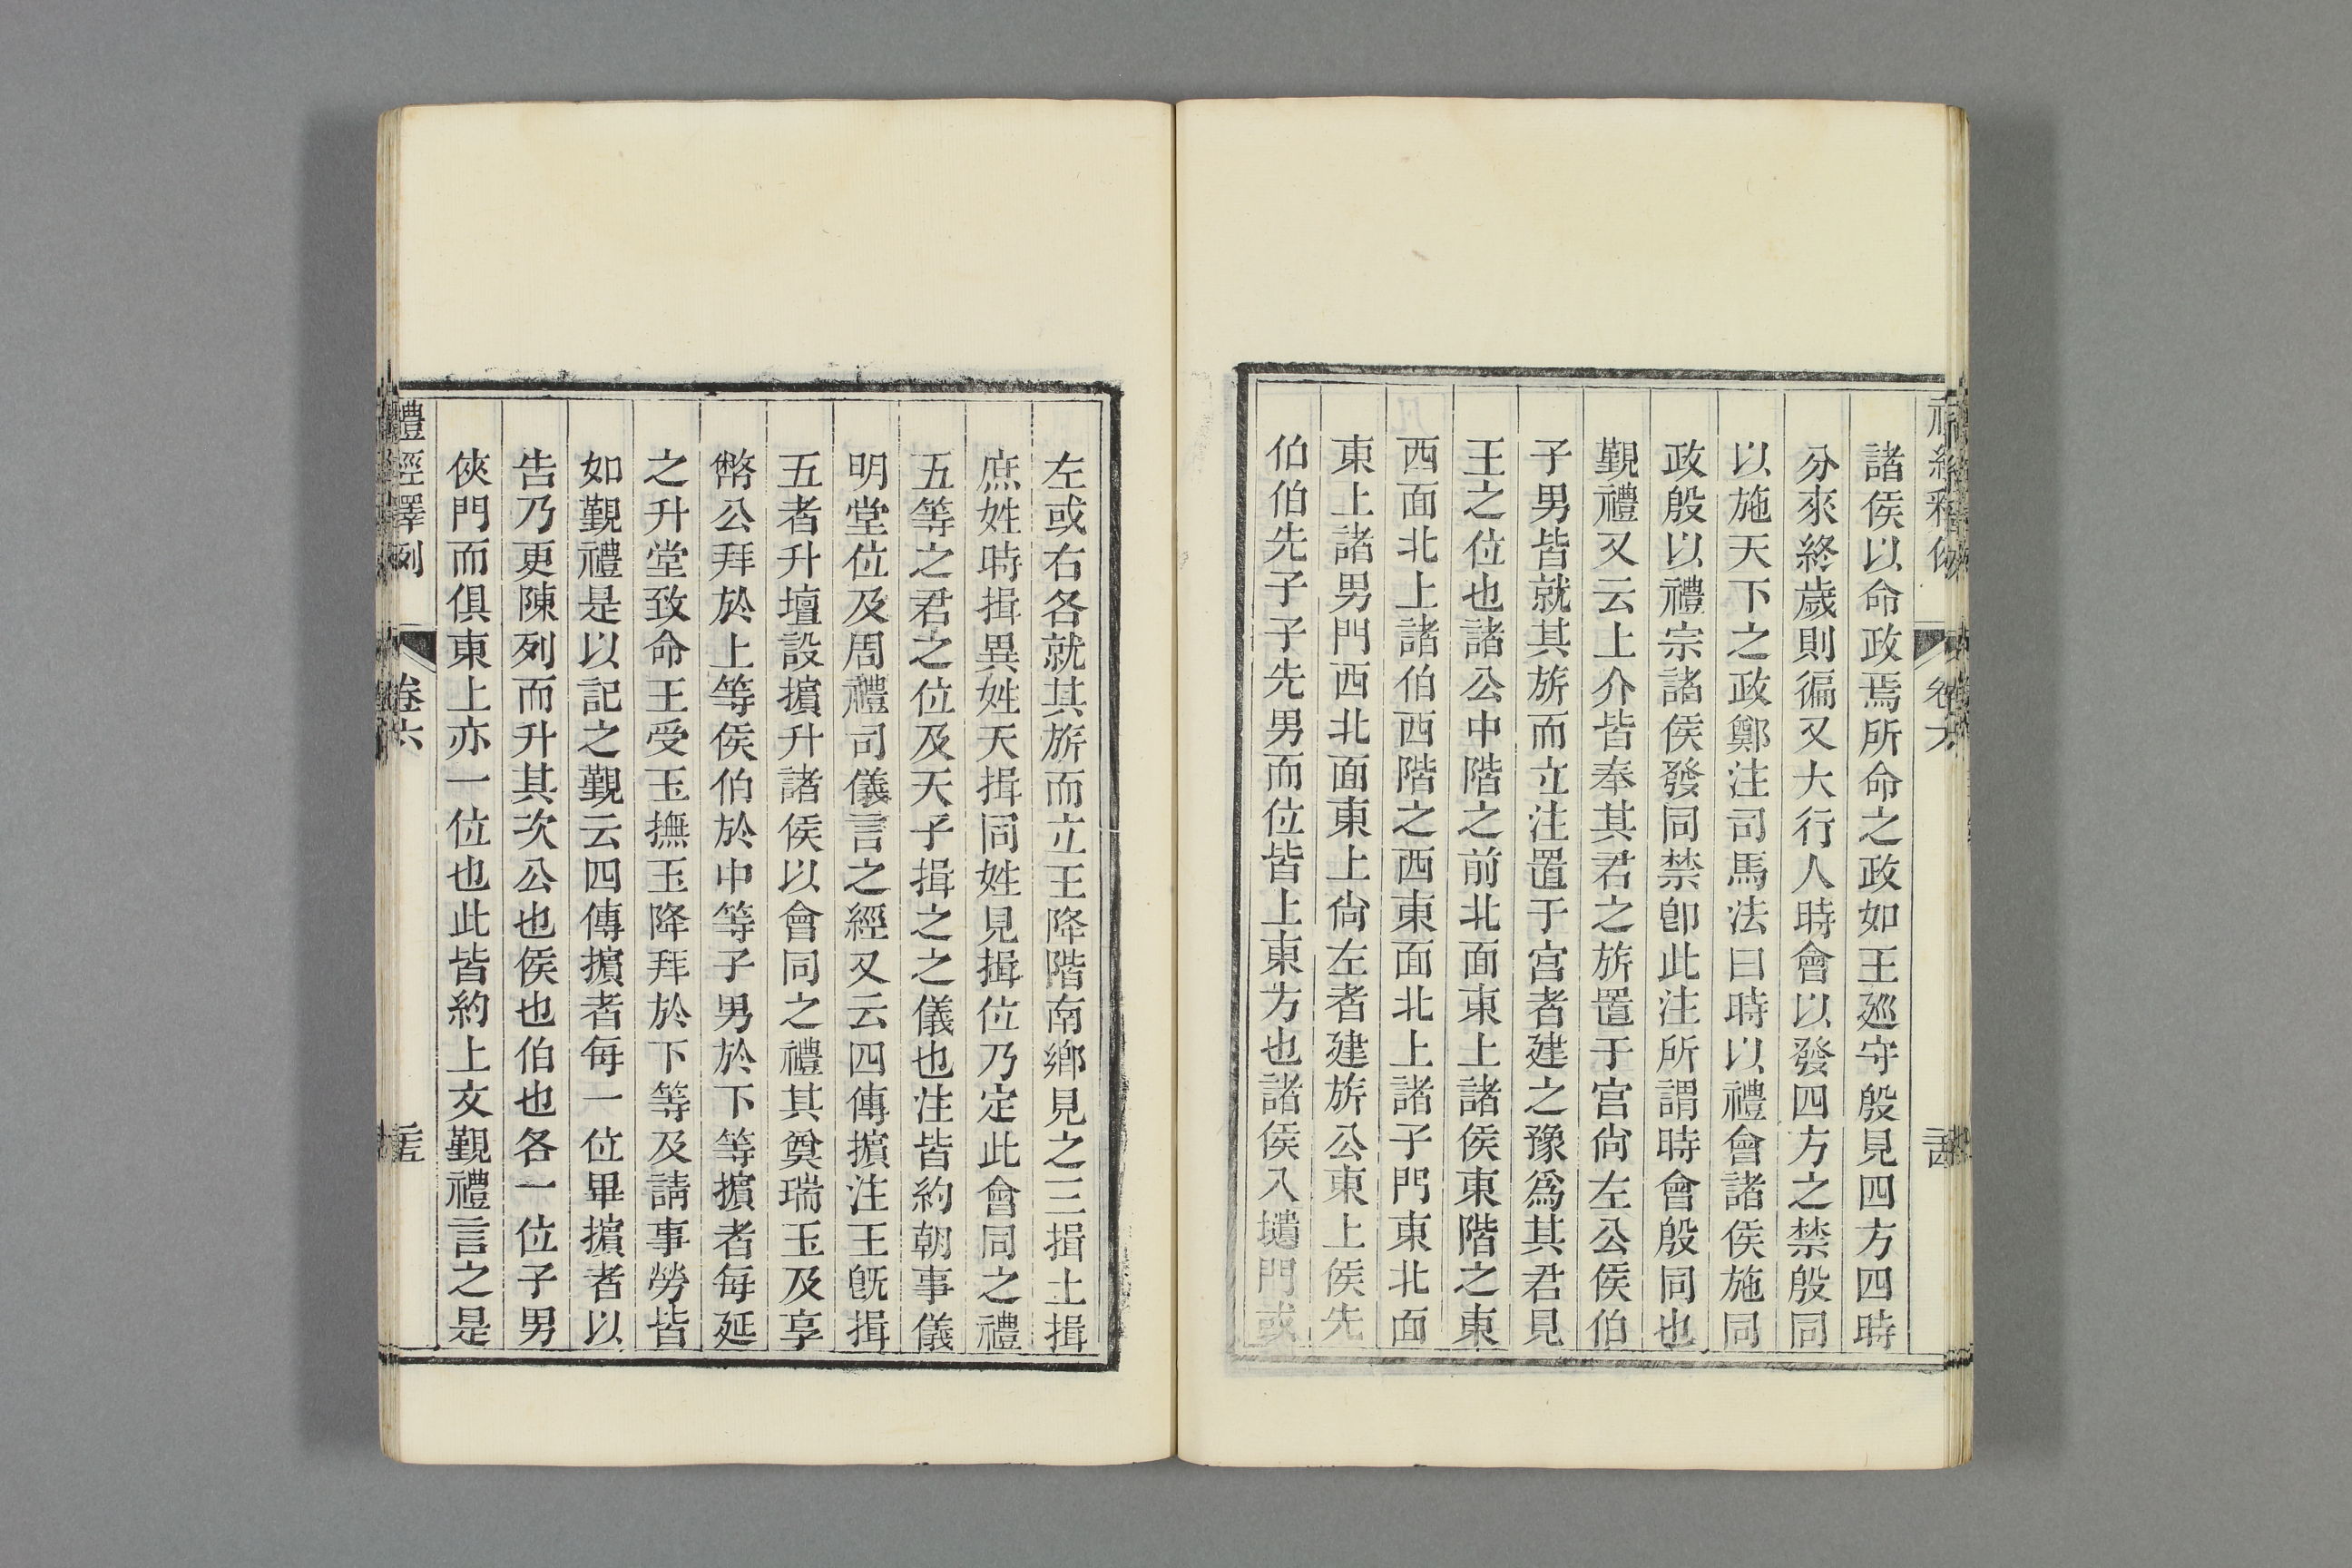 諸侯以命政焉所命之政如王廵守殷見四方四時
分來終歲則徧又大行人時會以發四方之禁殷同
以施天下之政鄭注司馬法曰時以禮會諸侯施同
政殷以禮宗諸侯發同禁卽此注所謂時會殷同也
覲禮又云上介皆奉其君之旂置于宫尙左公侯伯
子男皆就其旂而立注置于宫者建之豫爲其君見
王之位也諸公中階之前北面東上諸侯東階之東
西面北上諸伯西階之西東面北上諸子門東北面
東上諸男門西北面東上尙左者建旂公東上侯先
伯伯先子子先男而位皆上東方也諸侯入壝門或
左或右各就其旂而立王降階南鄉見之三揖土揖
庶姓時揖異姓天揖同姓見揖位乃定此會同之禮
五等之君之位及天子揖之之儀也注皆約朝事儀
明堂位及周禮司儀言之經又云四傳擯注王旣揖
五者升壇設擯升諸侯以會同之禮其奠瑞玉及享
幣公拜於上等侯伯於中等子男於下等擯者每延
之升堂致命王受玉撫玉降拜於下等及請事勞皆
如覲禮是以記之覲云四傳擯者每一位畢擯者以
告乃更陳列而升其次公也侯也伯也各一位子男
俠門而俱東上亦一位也此皆約上文覲禮言之是
禮經釋例 卷六